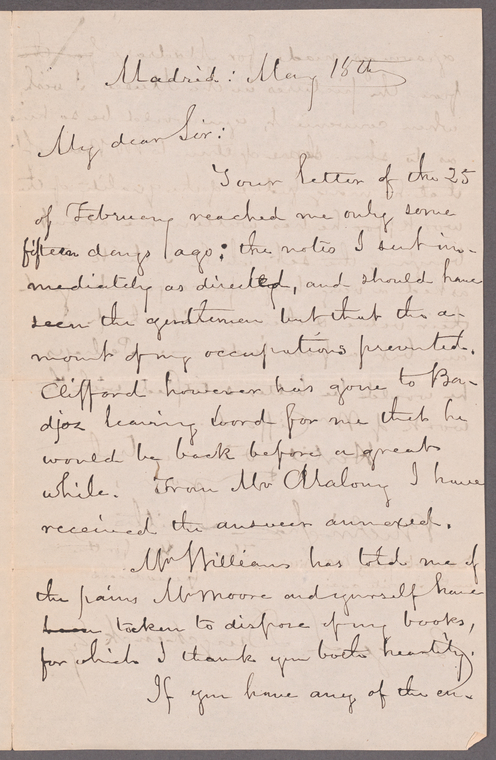 Madrid: May 18th
My dear Sir:
Your letter of the 25
of February reached me only some
fifteen days ago; the notes I sent im-
mediately as directed, and should have
seen the gentlemen but that the a-
mount of my occupations prevented.
Clifford however has gone to Ba-
djoz leaving word for me that he
would be back before a great
while. From Mr Malony I have
received the answer annexed.
Mr Williams has told me of
the pains Mr Moore and yourself have
been taken to dispose of my books,
for which I thank you both heartily.
If you have any of the en-